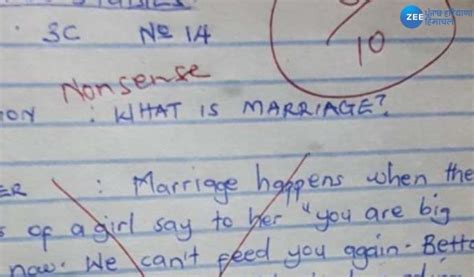 ZEE ਪੰਜਾਬ ਹਰਿਆਣਾ ਹਿਮਾਚਲ
SC No 14
10
Nonsense
ON : WHAT IS MARRIAGE?
ER : Marriage happens when the
s of a girl say to her "you are big
now. We can't feed you again. Bette